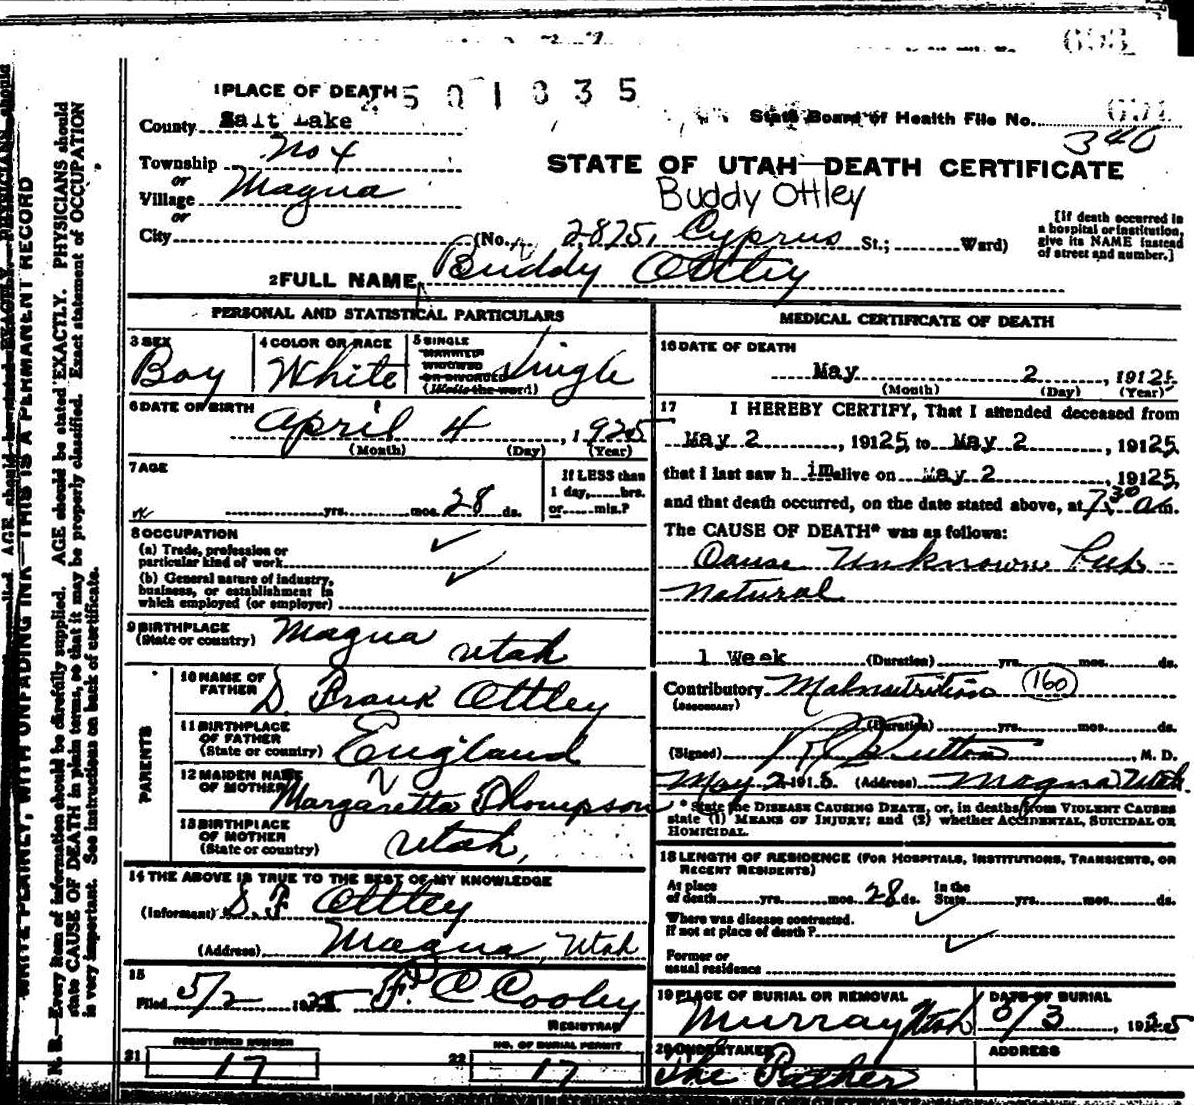 1 PLACE OF DEATH
2501835
County Salt Lake
State Board of Health File No.
340
Township No 4
STATE OF UTAH—DEATH CERTIFICATE
or
Village Magna
Buddy Ottley
or
City
(No. 2825, Cyprus St.; Ward)
[If death occurred in
a hospital or institution,
give its NAME instead
of street and number.]
2 FULL NAME Buddy Ottley
PERSONAL AND STATISTICAL PARTICULARS
3 SEX Boy
4 COLOR OR RACE White
5 SINGLE
MARRIED
WIDOWED
OR DIVORCED
(Write the word) Single
6 DATE OF BIRTH
April 4, 1925
(Month) (Day) (Year)
7 AGE
yrs. mos. 28 ds.
If LESS than
1 day, hrs.
or min.?
8 OCCUPATION
(a) Trade, profession or
particular kind of work
(b) General nature of industry,
business, or establishment in
which employed (or employer)
9 BIRTHPLACE
(State or country) Magna Utah
PARENTS
10 NAME OF
FATHER S. Frank Ottley
11 BIRTHPLACE
OF FATHER
(State or country) England
12 MAIDEN NAME
OF MOTHER Margaretta Thompson
13 BIRTHPLACE
OF MOTHER
(State or country) Utah,
14 THE ABOVE IS TRUE TO THE BEST OF MY KNOWLEDGE
(Informant) S. F Ottley
(Address) Magna, Utah
15
Filed 5/2 1925 F. C Cooley
REGISTRAR
21 REGISTERED NUMBER 17
22 NO. OF BURIAL PERMIT 17
MEDICAL CERTIFICATE OF DEATH
16 DATE OF DEATH
May 2, 19125
(Month) (Day) (Year)
17 I HEREBY CERTIFY, That I attended deceased from
May 2, 19125 to May 2, 19125,
that I last saw h im alive on May 2, 19125,
and that death occurred, on the date stated above, at 7.30 a m.
The CAUSE OF DEATH* was as follows:
Cause Unknown
Natural
1 Week (Duration) yrs. mos. ds.
Contributory Malnutrition 160
(SECONDARY)
(Duration) yrs. mos. ds.
(Signed) M. D.
May 2 191 (Address) Magna Utah.
* State the DISEASE CAUSING DEATH, or, in deaths from VIOLENT CAUSES
state (1) MEANS OF INJURY; and (2) whether ACCIDENTAL, SUICIDAL OR
HOMICIDAL.
18 LENGTH OF RESIDENCE (FOR HOSPITALS, INSTITUTIONS, TRANSIENTS, OR
RECENT RESIDENTS)
At place
of death yrs. mos. 28 ds. In the
State yrs. mos. ds.
Where was disease contracted.
if not at place of death?
Former or
usual residence
19 PLACE OF BURIAL OR REMOVAL
Murray Utah
DATE OF BURIAL
5/3, 1925
20 UNDERTAKER
The Father
ADDRESS
WRITE PLAINLY, WITH UNFADING INK—THIS IS A PERMANENT RECORD
N. B.—Every item of information should be carefully supplied. AGE should be stated EXACTLY. PHYSICIANS should
state CAUSE OF DEATH in plain terms, so that it may be properly classified. Exact statement of OCCUPATION
is very important. See instructions on back of certificate.